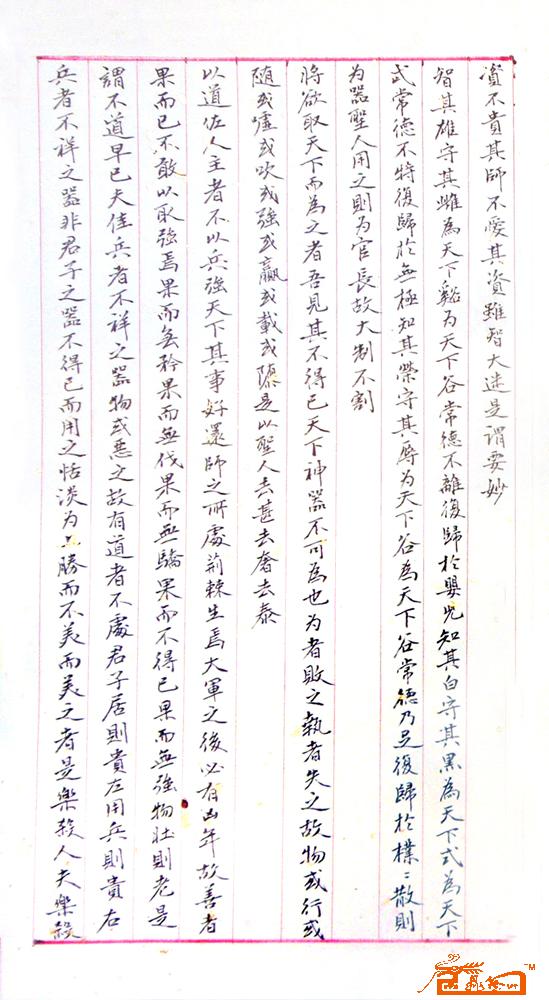 資不貴其師不愛其資雖智大迷是謂要妙
智其雄守其雌為天下谿为天下谷常德不離復歸於嬰児知其白守其黑為天下式為天下
式常德不特復歸於無極知其榮守其辱为天下谷為天下谷常德乃足復歸於樸〻散則
为器聖人用之則为官長故大制不割
將欲取天下而為之者吾見其不得已天下神器不可為也为者敗之執者失之故物或行或
随或嘘或吹或強或羸或載或隳是以聖人去甚去奢去泰
以道佐人主者不以兵強天下其事好還師之所處荊棘生焉大軍之後必有凶年故善者
果而已不敢以取強焉果而矜果而無伐果而無驕果而不得已果而無強物壯則老是
謂不道早已夫佳兵者不祥之器物或惡之故有道者不處君子居則貴左用兵則貴右
兵者不祥之器非君子之器不得已而用之恬淡为上勝而不美而美之者是樂殺人夫樂殺
TM